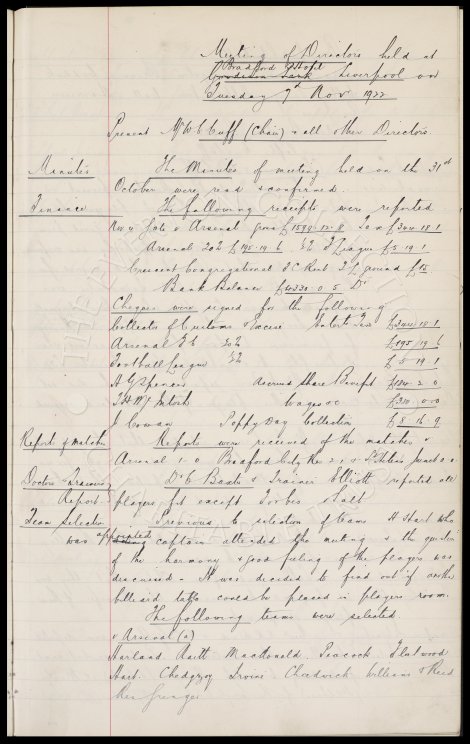 Meeting of Directors held at
Bradford Hotel
Goodison Park Liverpool on
Tuesday 7th Nov 1922
Present Mr W C Cuff (Chair) & all other Directors
Minutes The Minutes of meeting held on the 31st
October were read & confirmed.
Finance The following receipts were reported
Nov 4 Gate v Arsenal gross £1599-12-8 Tax £344-18-1
Arsenal 20% £195-19-6 ½% F League £5-19-1
Crescent Congregational F C Rent of ground £15
Bank Balance £4330-0-5 Dr
Cheques were signed for the following
Collector of Customs & Excise Entertn Tax £344-18-1
Arsenal F C 20% £195 19 6
Football League ½% £5 19 1
A G Spencer Accrued Share £ 2 0
T H McIntosh Wages &c £310-0-0
J Cowan Poppy Day Collection £8-16-9
Report of matches Reports were received of the matches v
Arsenal 1-0 Bradford City Res 2-1 &
Doctors Training Dr C Baxter & Trainer Elliott reported all
Report players fit except Forbes & Salt
Team Selection Previous to selection of teams H Hart who
was appointed captain attended the meeting & the question
of the harmony & good feeling of the players was
discussed. It was decided to find out if another
billiard table could be placed in players room.
The following teams were selected.
v Arsenal (a)
Harland Raitt MacDonald Peacock Fleetwood
Hart Chedgzoy Irvine Chadwick Williams & Reed
Res Grenyer